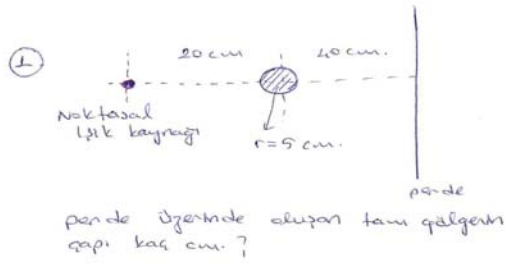 1
20 cm
40 cm.
Noktasal
Işık kaynağı
r=5 cm.
perde
perde üzerinde oluşan tam gölgenin
çapı kaç cm. ?